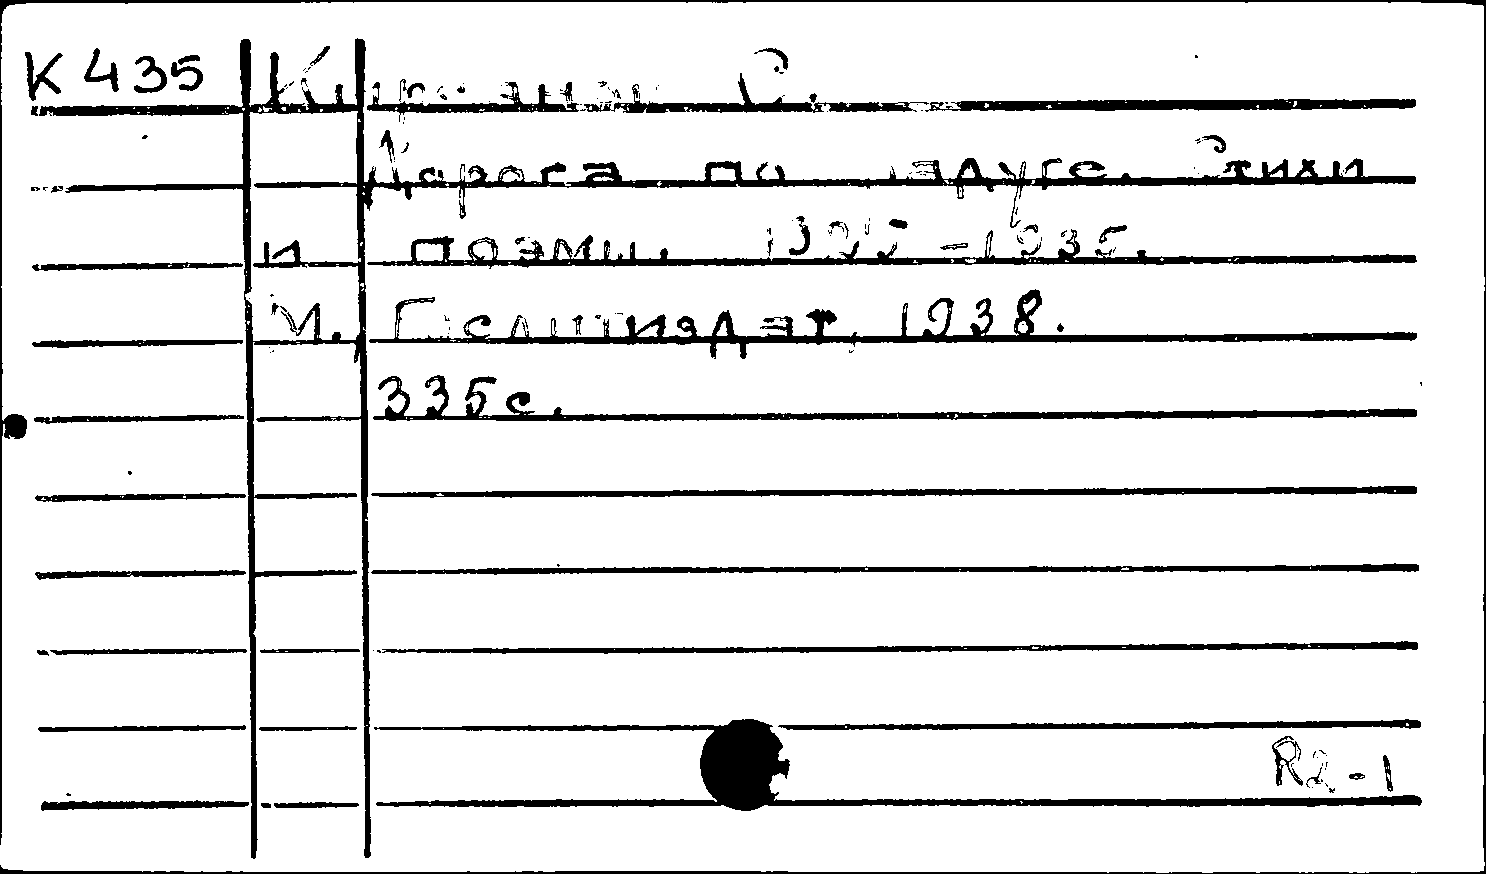 К 435 Кирсанов С.
Дорога по радуге. Стихи
и поэмы. 1925-1935.
М., Гослитиздат, 1938.
335с.
R2-1